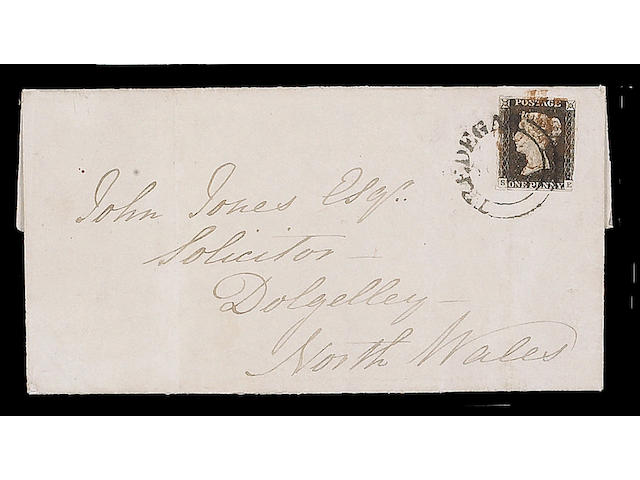 POSTAGE
TREDEGA
S E
ONE PENNY
John Jones Esqr.
Solicitor —
Dolgelley —
North Wales